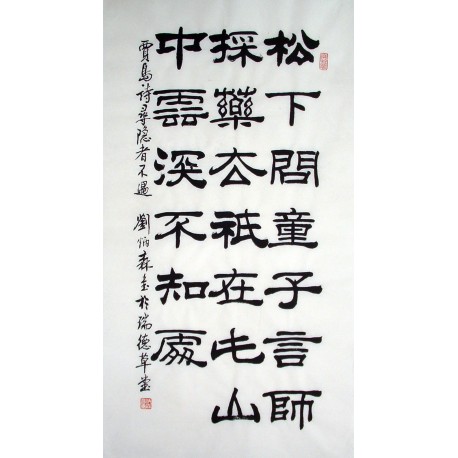 松下問童子言師
採藥去祇在此山
中雲深不知處
賈島诗尋隐者不遇 劉炳森書於瑞德草堂